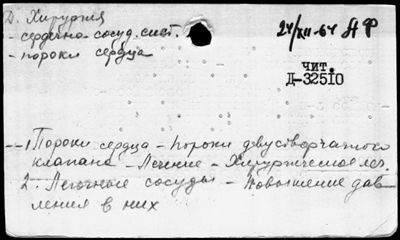 Д. Хирургия
- сердечно-сосуд. сист.
- пороки сердца
24/XII-64 НФ
ЧИТ.
Д-32510
1. Пороки сердца - Пороки двустворчатого
клапана - Лечение - Хирургическое леч.
2. Легочные сосуды - Повышение дав-
ления в них